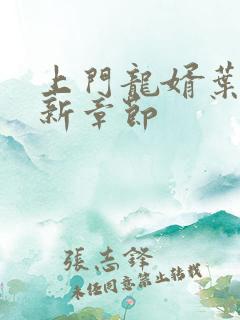 上門龍婿葉
新章節
張志鋒
未經同意禁止轉載